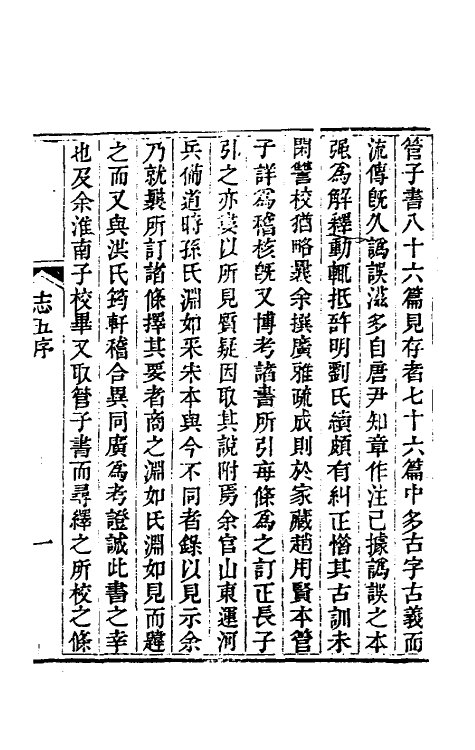 管子書八十六篇見存者七十六篇中多古字古義而
流傳旣久譌誤滋多自唐尹知章作注已據譌誤之本
强爲解釋動輒抵牾明劉氏績頗有糾正惜其古訓未
閑讐校猶略曩余撰廣雅疏成則於家藏趙用賢本管
子詳爲稽核旣又博考諸書所引每條爲之訂正長子
引之亦屢以所見質疑因取其說附焉余官山東運河
兵備道時孫氏淵如采宋本與今不同者錄以見示余
乃就曩所訂諸條擇其要者商之淵如氏淵如見而韙
之而又與洪氏筠軒稽合異同廣爲考證誠此書之幸
也及余淮南子校畢又取管子書而尋繹之所校之條
志五序
一